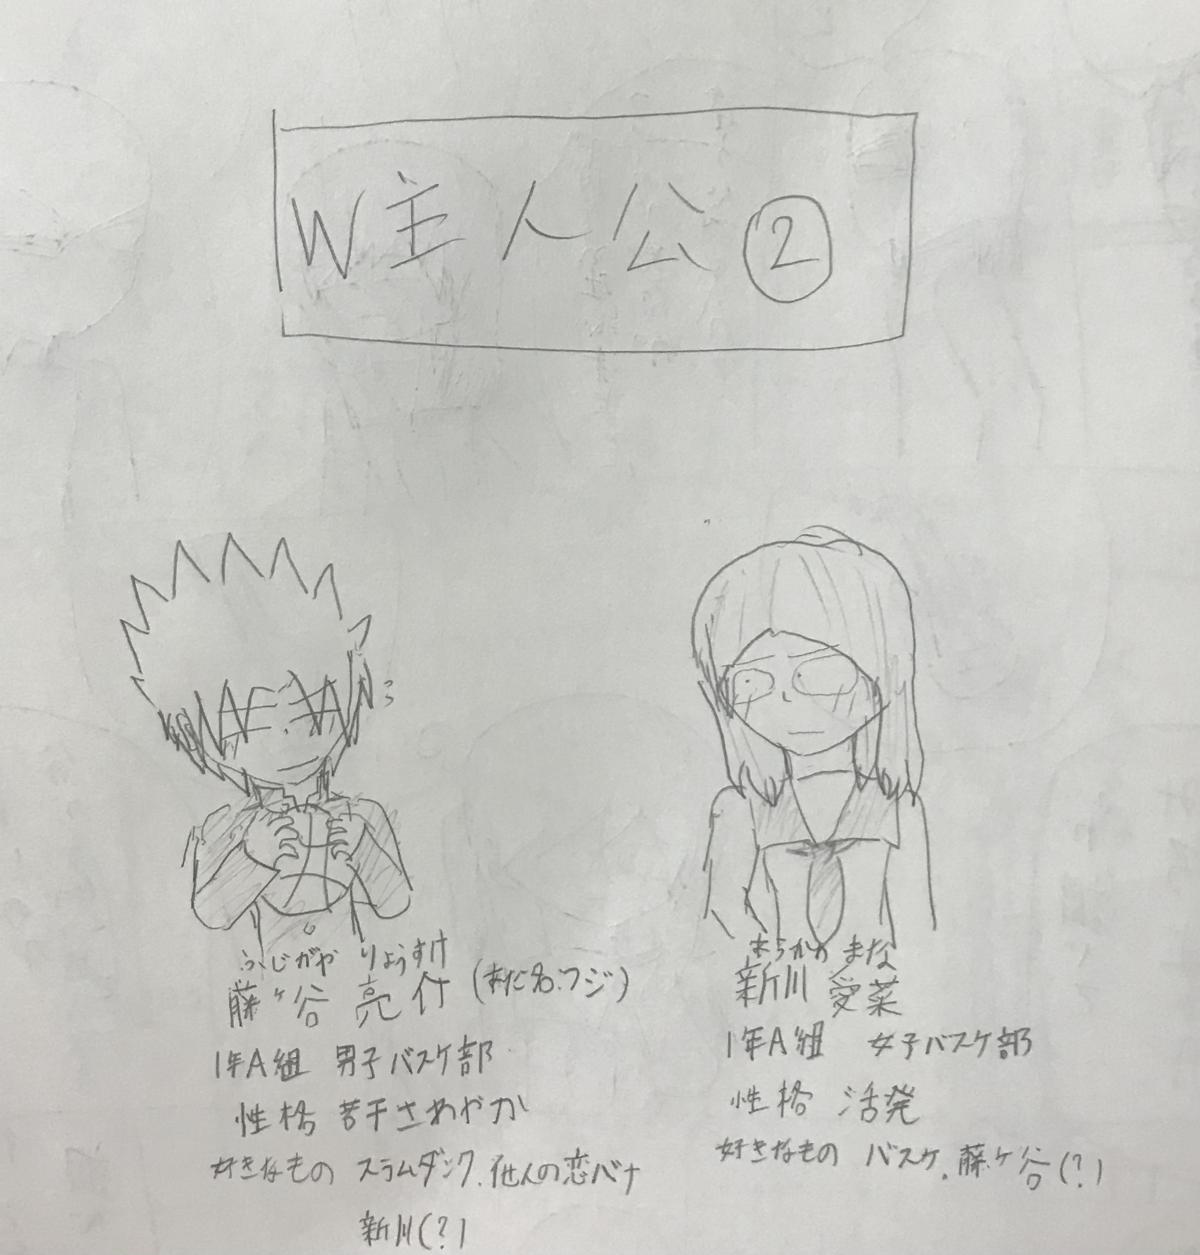 W主人公②
ふじがや りょうすけ
藤ヶ谷 亮介 (あだ名:フジ)
1年A組 男子バスケ部
性格 若干さわやか
好きなもの スラムダンク、他人の恋バナ
新川(?)
あらかわ まな
新川 愛菜
1年A組 女子バスケ部
性格 活発
好きなもの バスケ、藤ヶ谷(?)